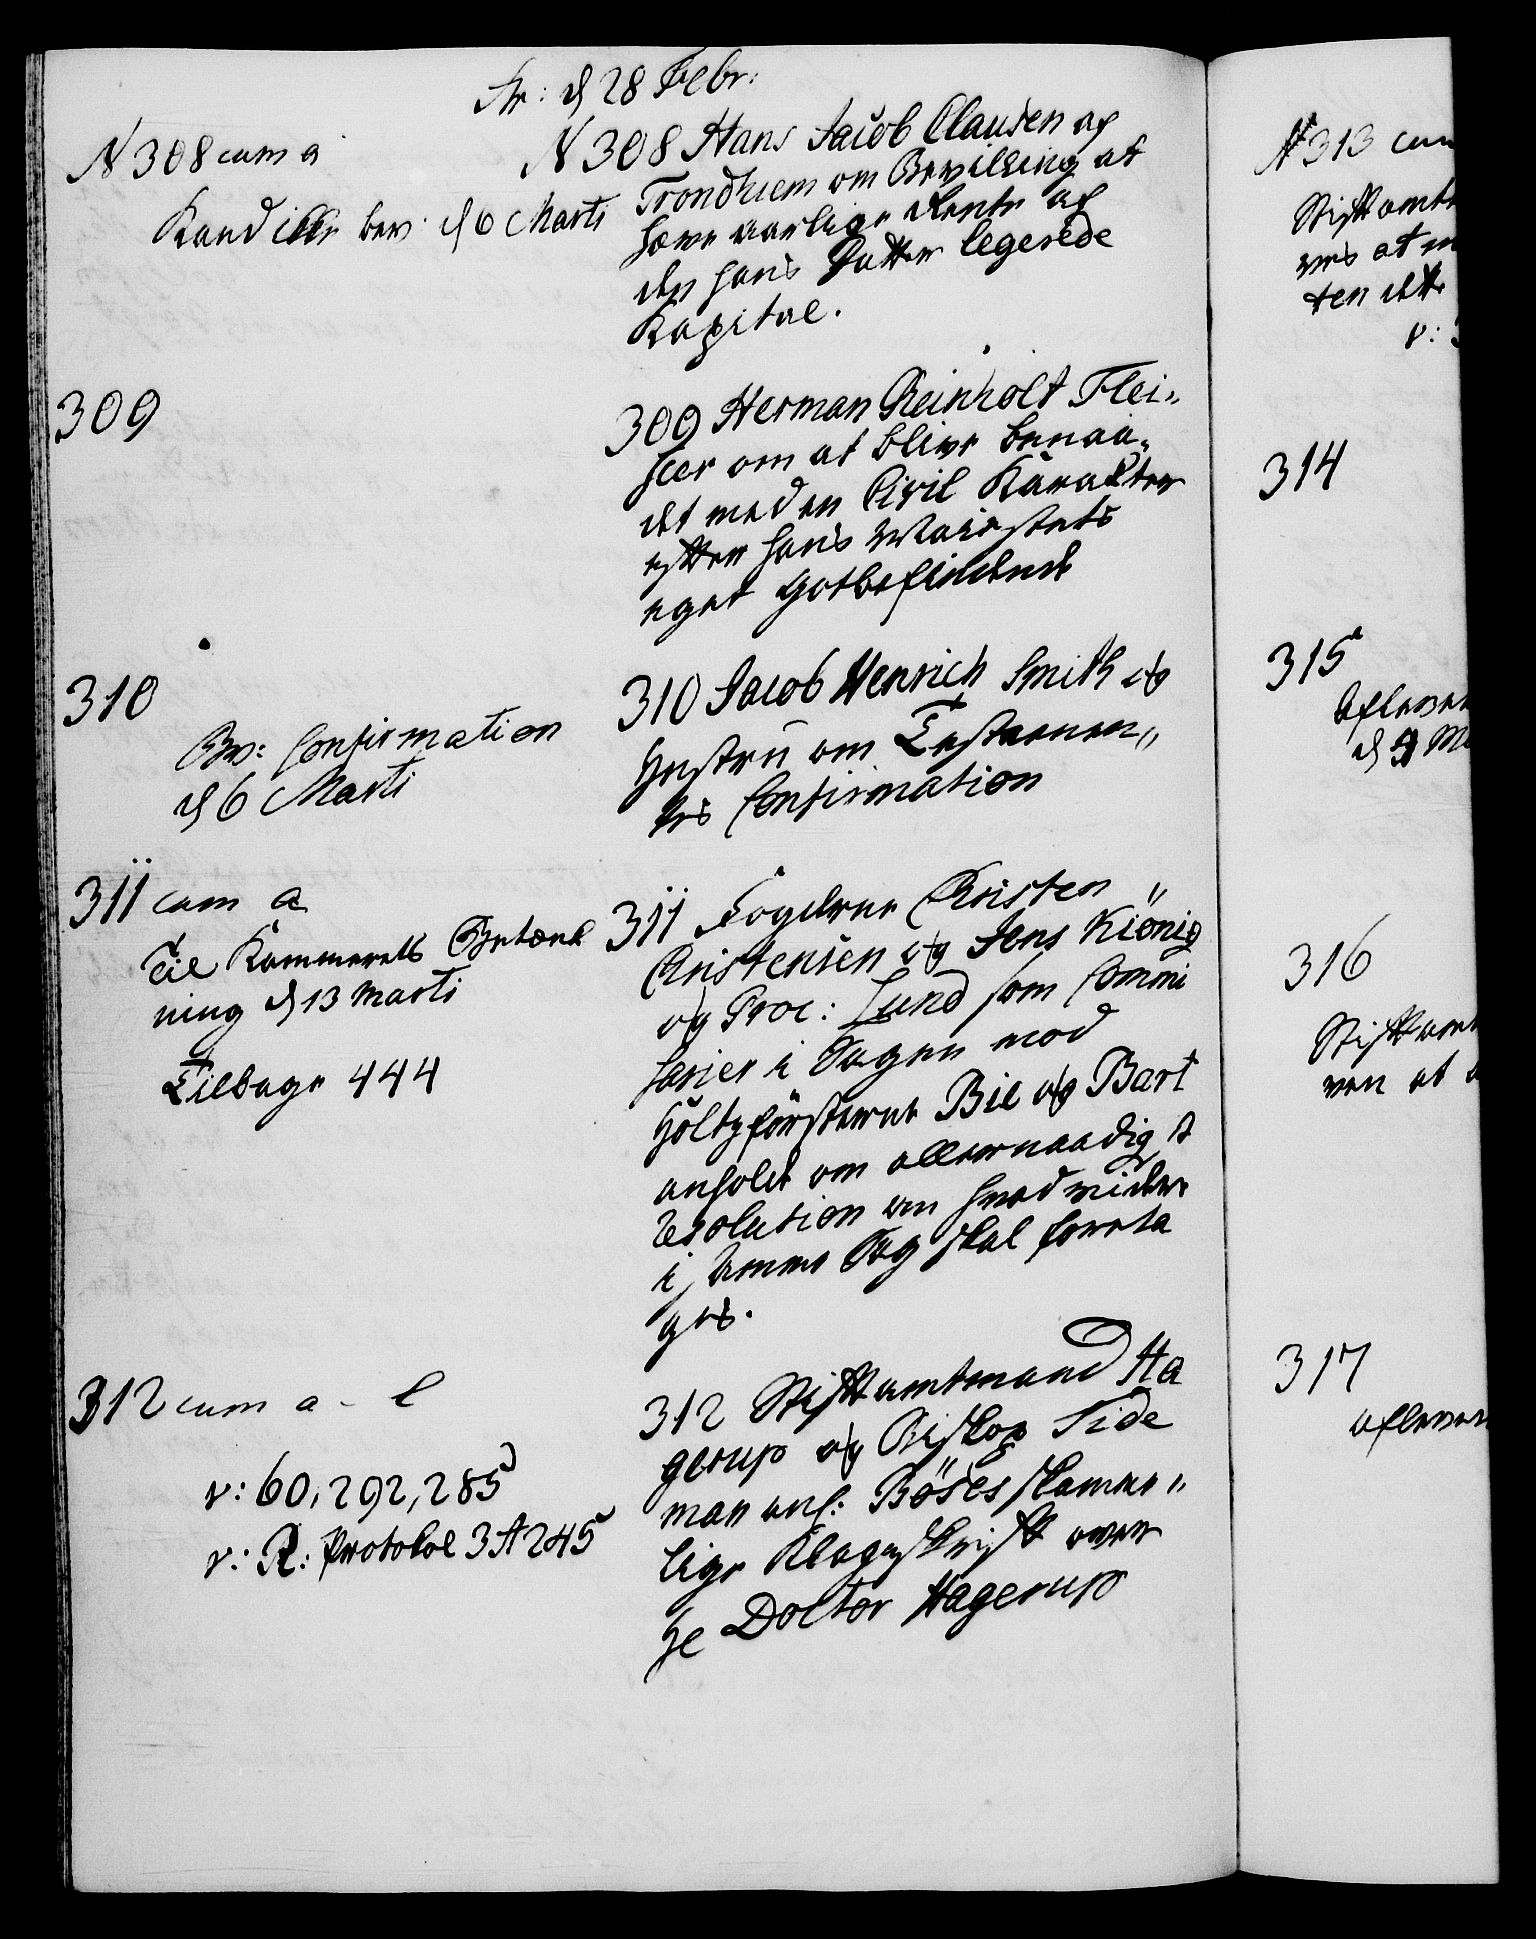 Fr: d 28 Febr:
N 308 cum a
Kand ikke bev: d 6 Marti
N 308 Hans Jacob Clausen af
Trondhiem om Bevilling at
hæve aarlige Rente af
den hans Datter legerede
Kapital.
309
309 Herman Reinholt Flei„
scer om at blive benaa„
det med en Civil Karakter
efter hans Maiestets
eget Gotbefindende
310
Bev: Confirmation
d 6 Marti
310 Jacob Henrich Smith og
Hustru om Testamen„
tes Confirmation
311 cum a
Til Kammerets Betænk
ning d 13 Marti
Tilbage 444
311 Fogderne Christen
Christensen og Jens Kiönig
og Proc: Lund som Commi
sarier i Sagen mod
Holtzförsterne Bil og Bart
anholde om allernaadigst
Resolution om hvad videre
i samme Sag skal foreta
ges.
312 cum a - l
v: 60, 292, 285
v: R: Protokol 3 A 245
312 Stiftamtmand Ha
gerup og Biskop Tide
man anl: Böses skamme„
lige Klageskrift over
H Doktor Hagerup
N 313 cum
Stiftamt
ves at
ten dette
v: 3
314
315
afleveret
d 9 M
316
Stiftamt
ven at
317
afleveret